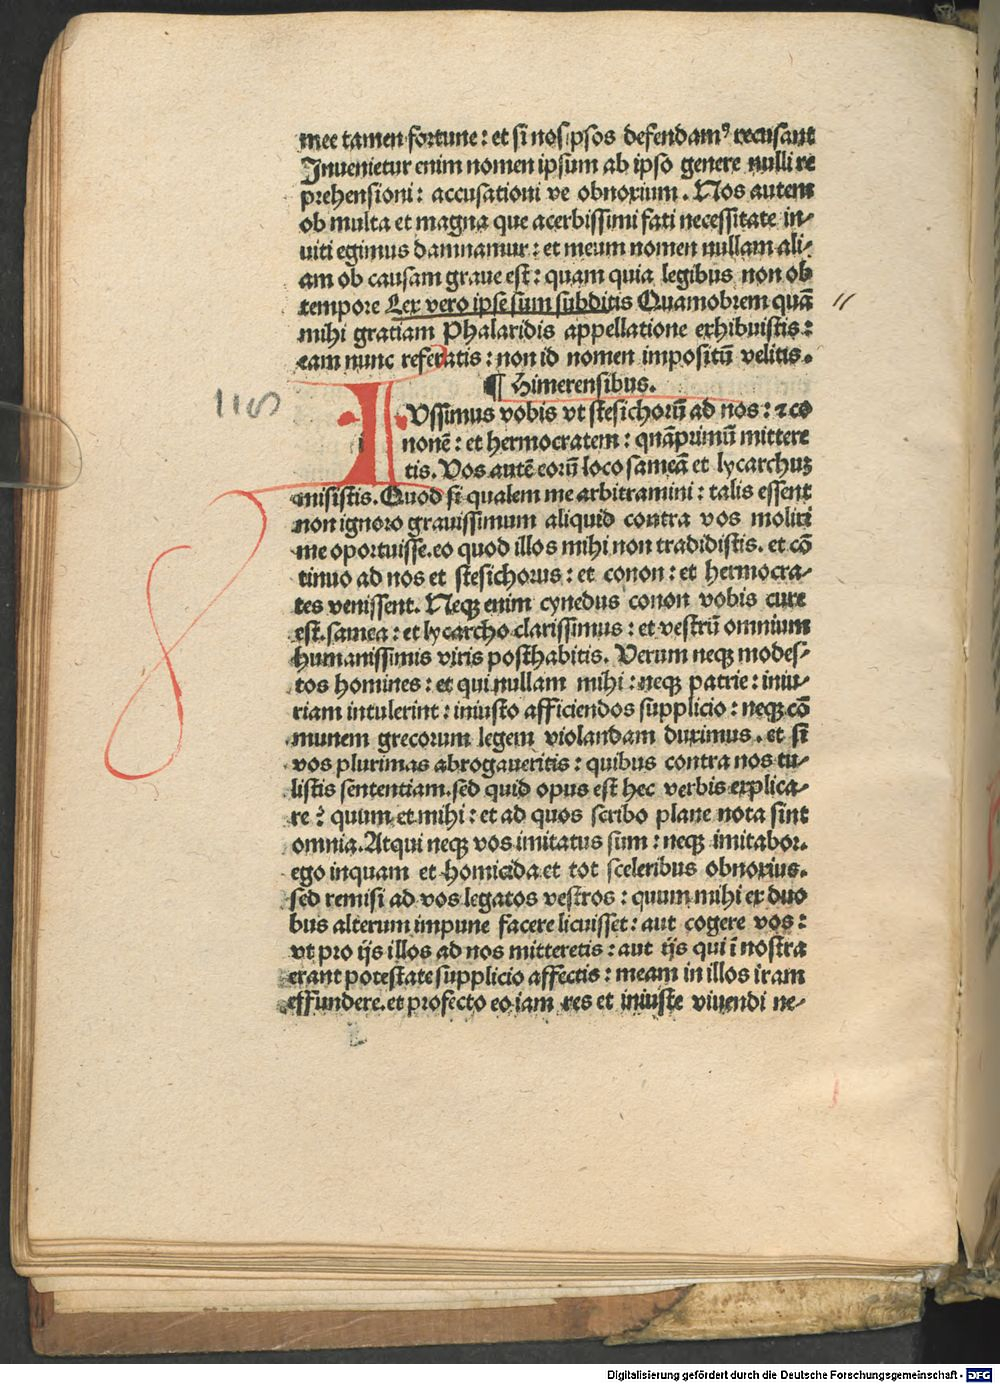 mee tamen fortune: et si nos ipsos defendamꝰ recusant
Inuenietur enim nomen ipsum ab ipso genere nulli re
prehensioni: accusationi ve obnoxium. Nos autem
ob multa et magna que acerbissimi fati necessitate in-
uiti egimus damnamur: et meum nomen nullam ali-
am ob causam graue est: quam quia legibus non ob
tempore Lex vero ipse sum subditis Quamobrem quā
mihi gratiam Phalaridis appellatione exhibuistis:
eam nunc referatis: non id nomen impositū velitis.
¶ Himerensibus.
IUssimus vobis vt stesichorū ad nos: ⁊ co
nonē: et hermocratem: quāprimū mittere
tis. Vos autē eorū loco sameā et lycarchuꝫ
misistis. Quod si qualem me arbitramini: talis essem
non ignoro grauissimum aliquid contra vos moliri
me oportuisse. eo quod illos mihi non tradidistis. et cō
tinuo ad nos et stesichorus: et conon: et hermocra-
tes venissent. Neqꝫ enim cynedus conon vobis cure
est. samea: et lycarcho clarissimus: et vestrū omnium
humanissimis viris posthabitis. Verum neqꝫ modes-
tos homines: et qui nullam mihi: neqꝫ patrie: iniu-
riam intulerint: iniusto afficiendos supplicio: neqꝫ cō
munem grecorum legem violandam duximus. et si
vos plurimas abrogaueritis: quibus contra nos tu-
listis sententiam. sed quid opus est hec verbis explica-
re? quum et mihi: et ad quos scribo plane nota sint
omnia. Atqui neqꝫ vos imitatus sum: neqꝫ imitabor.
ego inquam et homicida et tot sceleribus obnoxius.
sed remisi ad vos legatos vestros: quum mihi ex duo
bus alterum impune facere licuisset: aut cogere vos:
vt pro ijs illos ad nos mitteretis: aut ijs qui ī nostra
erant potestate supplicio affectis: meam in illos iram
effundere. et profecto eo iam res et iniuste viuendi ne-
Digitalisierung gefördert durch die Deutsche Forschungsgemeinschaft - DFG